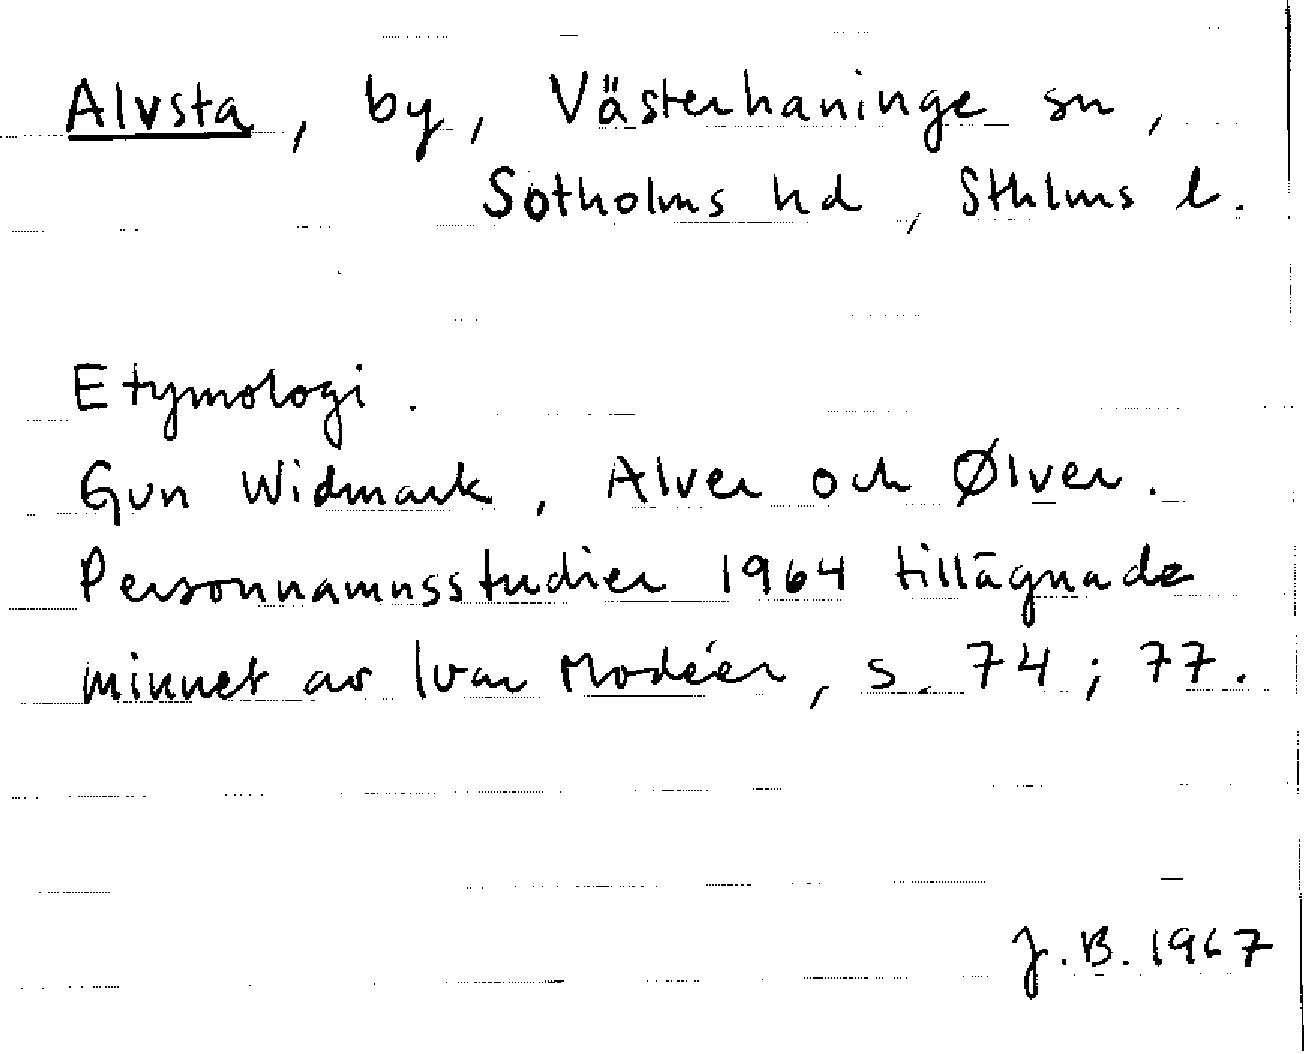 Alvsta, by, Västerhaninge sn,
Sotholms hd, Sthlms l.
Etymologi.
Gun Widmark, Alver och Ølver.
Personnamnsstudier 1964 tillägnade
minnet av Ivar Modéer, s. 74; 77.
J.B. 1967